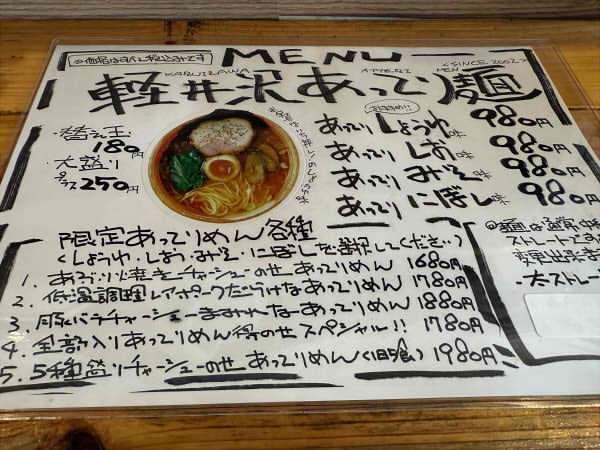 ※価格は全て税込みです
MENU
KARUIZAWA
MEN
<SINCE.2002>
軽井沢あってり麺
・替え玉
180円
・大盛り
プラス250円
おすすめ!!
あってり しょうゆ味 980円
あってり しお味 980円
あってり みそ味 980円
あってり にぼし味 980円
限定あってりめん各種
(しょうゆ・しお・みそ・にぼしを選択してください)
1. あぶり焼きチャーシューのせあってりめん 1680円
2. 低温調理レアポークだらけなあってりめん 1780円
3. 豚バラチャーシューまみれなあってりめん 1880円
4. 全部入りあってりめん得のせスペシャル!! 1780円
5. 5種盛りチャーシューのせ あってりめん 1980円
ストレートで
変更出来ま
・太ストレー